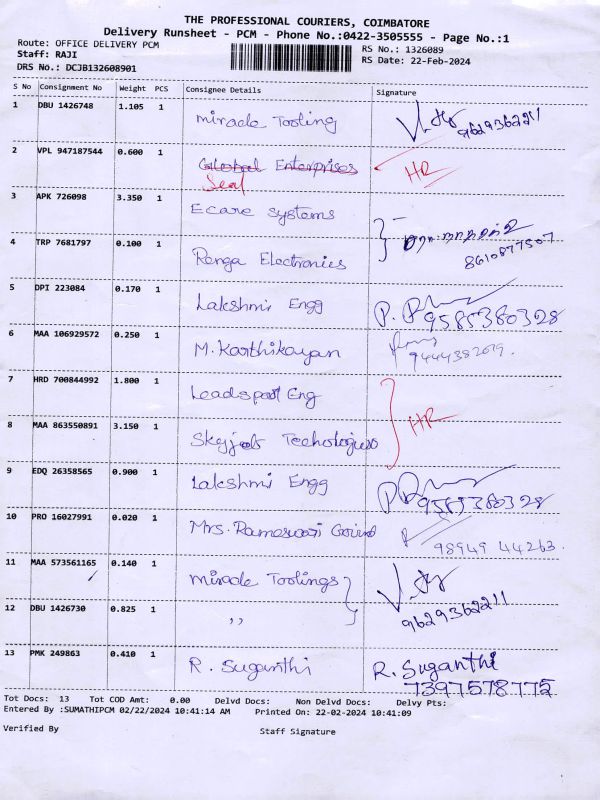 THE PROFESSIONAL COURIERS, COIMBATORE
Delivery Runsheet - PCM - Phone No.:0422-3505555 - Page No.:1
Route: OFFICE DELIVERY PCM
RS No.: 1326089
Staff: RAJI
RS Date: 22-Feb-2024
DRS No.: DCJB132608901
S No Consignment No Weight PCS Consignee Details Signature
1 DBU 1426748 1.105 1 miracle Tooling 9629362211
2 VPL 947187544 0.600 1 Global Enterprises HR
Seal
3 APK 726098 3.350 1 Ecare systems
4 TRP 7681797 0.100 1 Renga Electronics 8610877507
5 DPI 223084 0.170 1 Lakshmi Engg 9585380328
6 MAA 106929572 0.250 1 M. Karthikayan 9444382679.
7 HRD 700844992 1.800 1 Leadspost Eng
HR
8 MAA 863550891 3.150 1 Skyjob Techologies
9 EDQ 26358565 0.900 1 Lakshmi Engg 9585380328
10 PRO 16027991 0.020 1 Mrs. 98949 44263.
11 MAA 573561165 0.140 1 miracle Toolings
9629362211
12 DBU 1426730 0.825 1 ,,
13 PMK 249863 0.410 1 R. Suganthi R. Suganthi
7397578775
Tot Docs: 13 Tot COD Amt: 0.00 Delvd Docs: Non Delvd Docs: Delvy Pts:
Entered By :SUMATHIPCM 02/22/2024 10:41:14 AM Printed On: 22-02-2024 10:41:09
Verified By Staff Signature